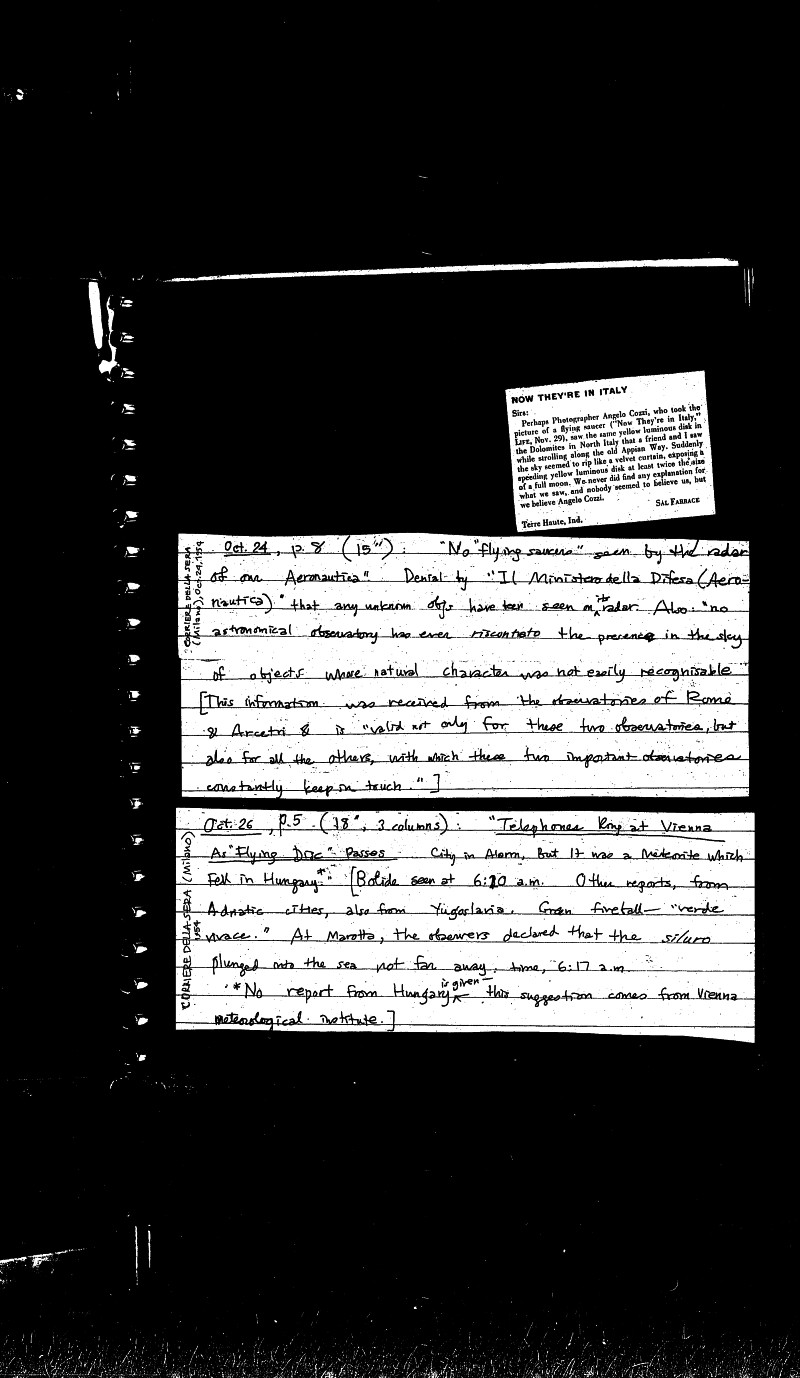 NOW THEY'RE IN ITALY
Sirs:
Perhaps Photographer Angelo Cozzi, who took the
picture of a flying saucer ("Now They're in Italy,"
LIFE, Nov. 29), saw the same yellow luminous disk in
the Dolomites in North Italy that a friend and I saw
while strolling along the old Appian Way. Suddenly
the sky seemed to rip like a velvet curtain, exposing a
speeding yellow luminous disk at least twice the size
of a full moon. We never did find any explanation for
what we saw, and nobody seemed to believe us, but
we believe Angelo Cozzi.
SAL FARRACE
Terre Haute, Ind.
CORRIERE DELLA SERA
(Milano), Oct. 24, 1954
Oct. 24, p. 8 (15"): "No "flying saucers" seen by the radar
of our Aeronautica". Denial by "Il Ministero della Difesa (Aero-
nautica)" that any unknown objs have been seen on its radar. Also: "no
astronomical observatory has ever riscontrato the presence in the sky
of objects whose natural character was not easily recognisable"
[This information was received from the observatories of Rome
& Arcetri & is "valid not only for these two observatories, but
also for all the others, with which these two important observatories
constantly keep in touch."]
CORRIERE DELLA SERA (Milano)
1954
Oct. 26, p. 5 (18", 3 columns): "Telephones Ring at Vienna
As "Flying Disc" Passes City in Alarm, But It was a Meteorite which
Fell in Hungary*". [Bolide seen at 6:20 a.m. Other reports, from
Adriatic cities, also from Yugoslavia. Green fireball — "verde
vivace." At Marotta, the observers declared that the siluro
plunged into the sea not far away; time, 6:17 a.m.
*No report from Hungary is given — this suggestion comes from Vienna
meteorological institute.]